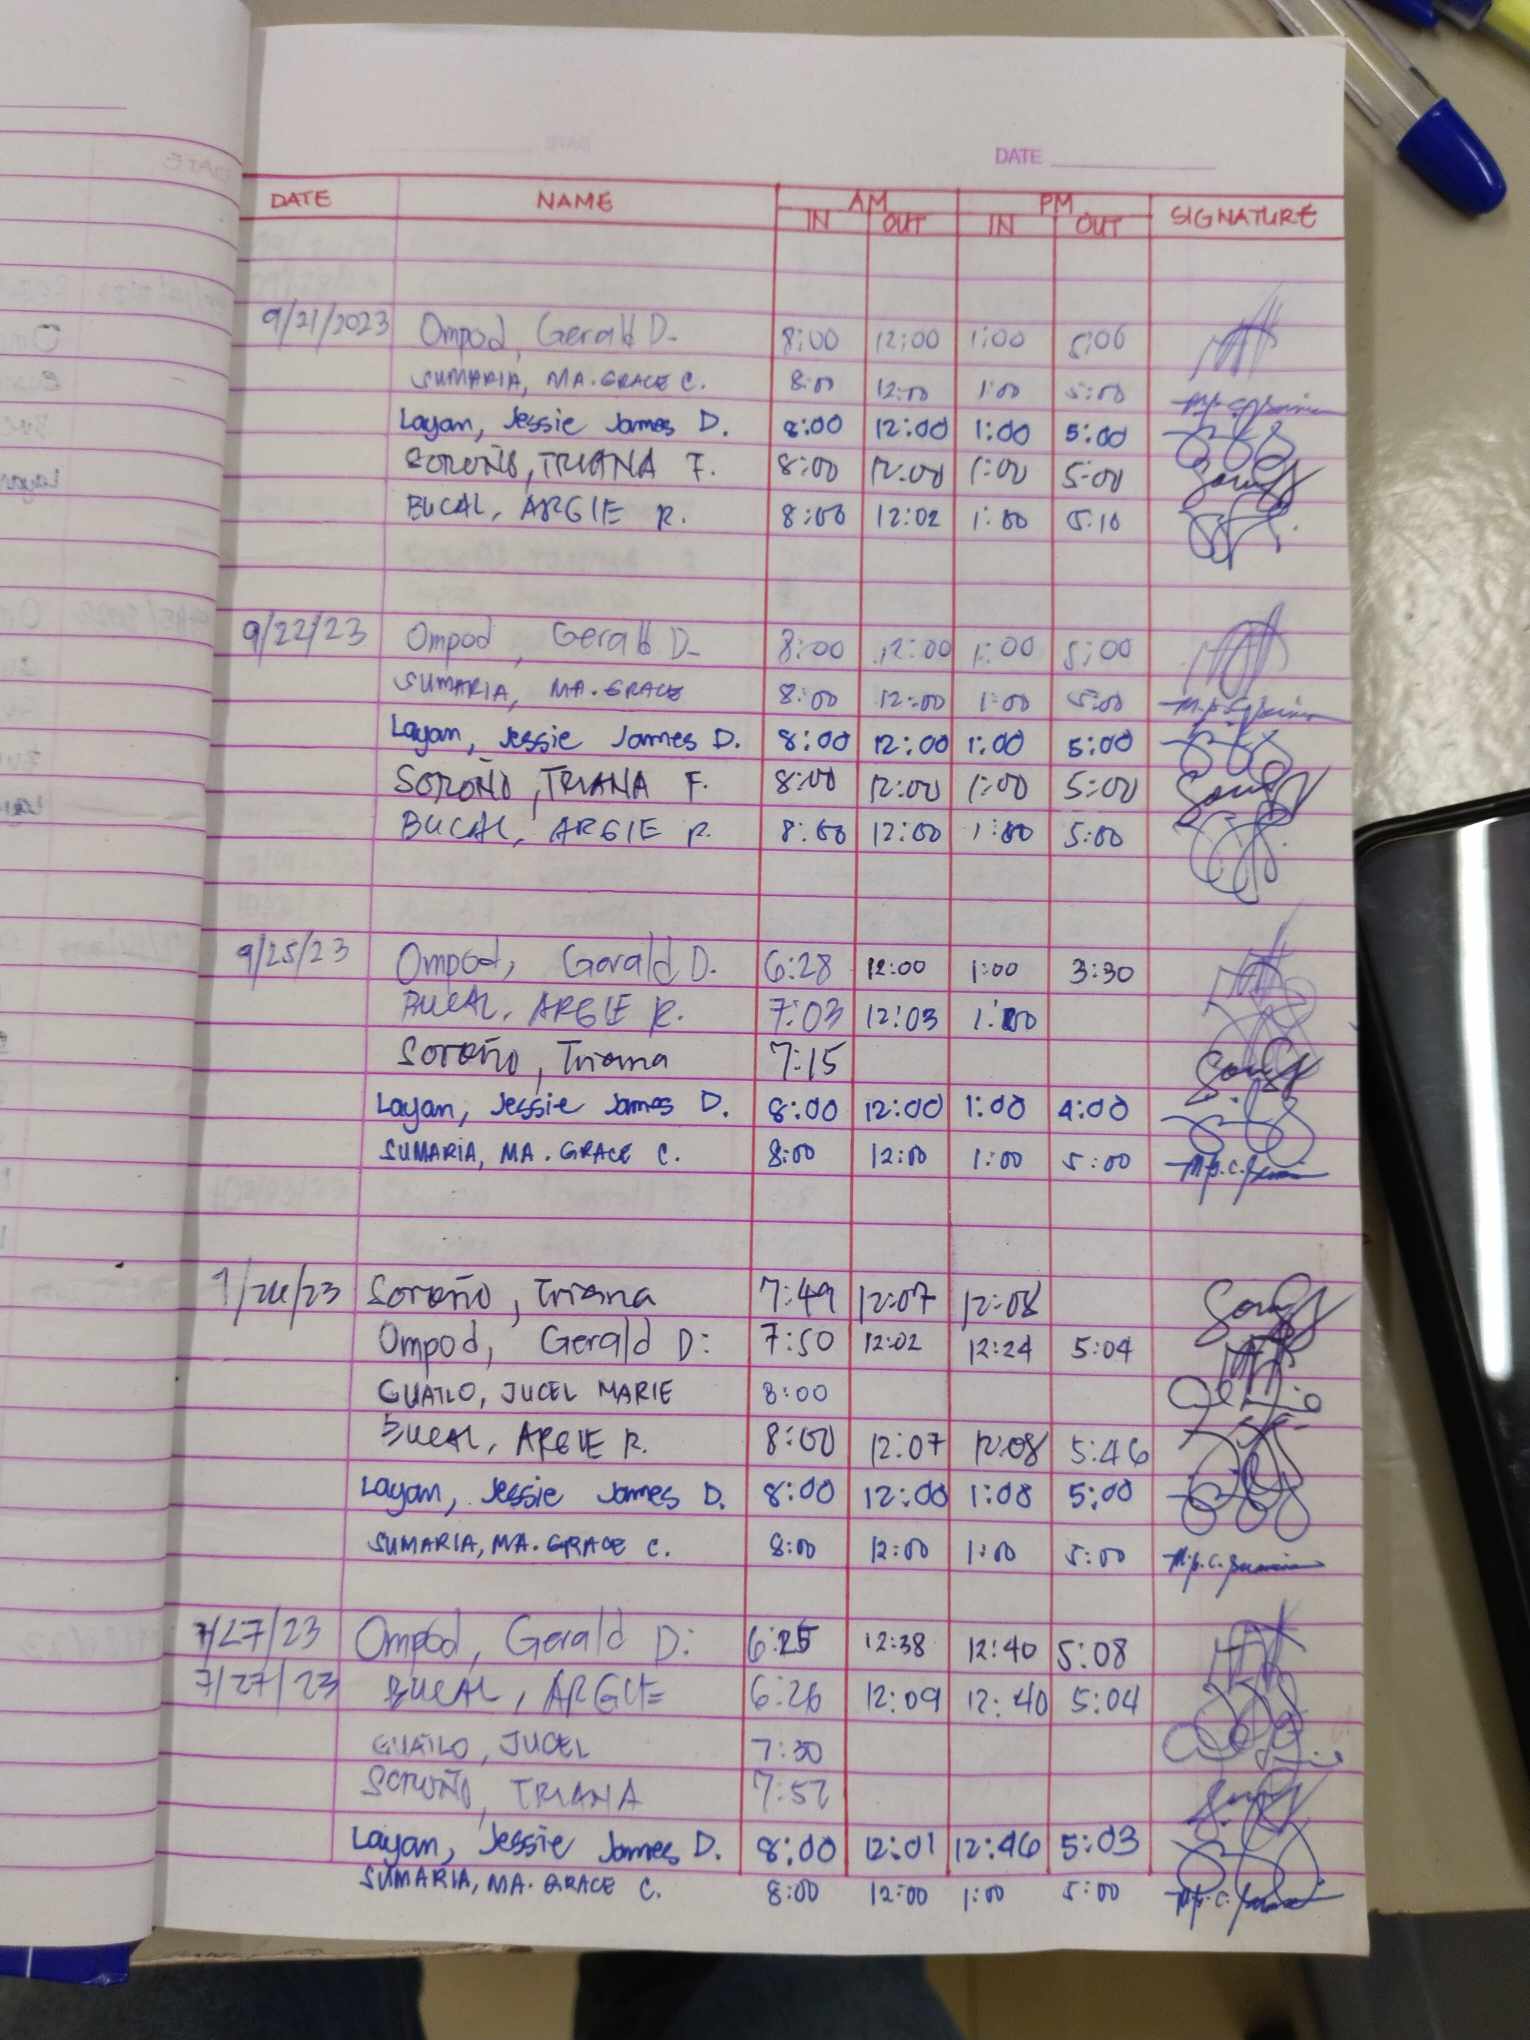 DATE
DATE NAME AM PM SIGNATURE
IN OUT IN OUT
9/21/2023 Ompod, Gerald D. 8:00 12:00 1:00 5:00
SUMARIA, MA. GRACE C. 8:00 12:00 1:00 5:00
Layan, Jessie James D. 8:00 12:00 1:00 5:00
SOROÑO, TRIANA F. 8:00 12:00 1:00 5:00
BUCAL, ARGIE R. 8:00 12:02 1:00 5:10
9/22/23 Ompod, Gerald D. 8:00 12:00 1:00 5:00
SUMARIA, MA. GRACE 8:00 12:00 1:00 5:00
Layan, Jessie James D. 8:00 12:00 1:00 5:00
SOROÑO, TRIANA F. 8:00 12:00 1:00 5:00
BUCAL, ARGIE R. 8:00 12:00 1:00 5:00
9/25/23 Ompod, Gerald D. 6:28 12:00 1:00 3:30
BUCAL, ARGIE R. 7:03 12:03 1:00
Soroño, Triana 7:15
Layan, Jessie James D. 8:00 12:00 1:00 4:00
SUMARIA, MA. GRACE C. 8:00 12:00 1:00 5:00
9/26/23 Soroño, Triana 7:49 12:07 12:08
Ompod, Gerald D. 7:50 12:02 12:24 5:04
GUATLO, JUCEL MARIE 8:00
BUCAL, ARGIE R. 8:00 12:07 12:08 5:46
Layan, Jessie James D. 8:00 12:00 1:08 5:00
SUMARIA, MA. GRACE C. 8:00 12:00 1:00 5:00
9/27/23 Ompod, Gerald D. 6:25 12:38 12:40 5:08
7/27/23 BUCAL, ARGIE 6:26 12:09 12:40 5:04
GUATLO, JUCEL 7:30
SOROÑO, TRIANA 7:52
Layan, Jessie James D. 8:00 12:01 12:46 5:03
SUMARIA, MA. GRACE C. 8:00 12:00 1:00 5:00